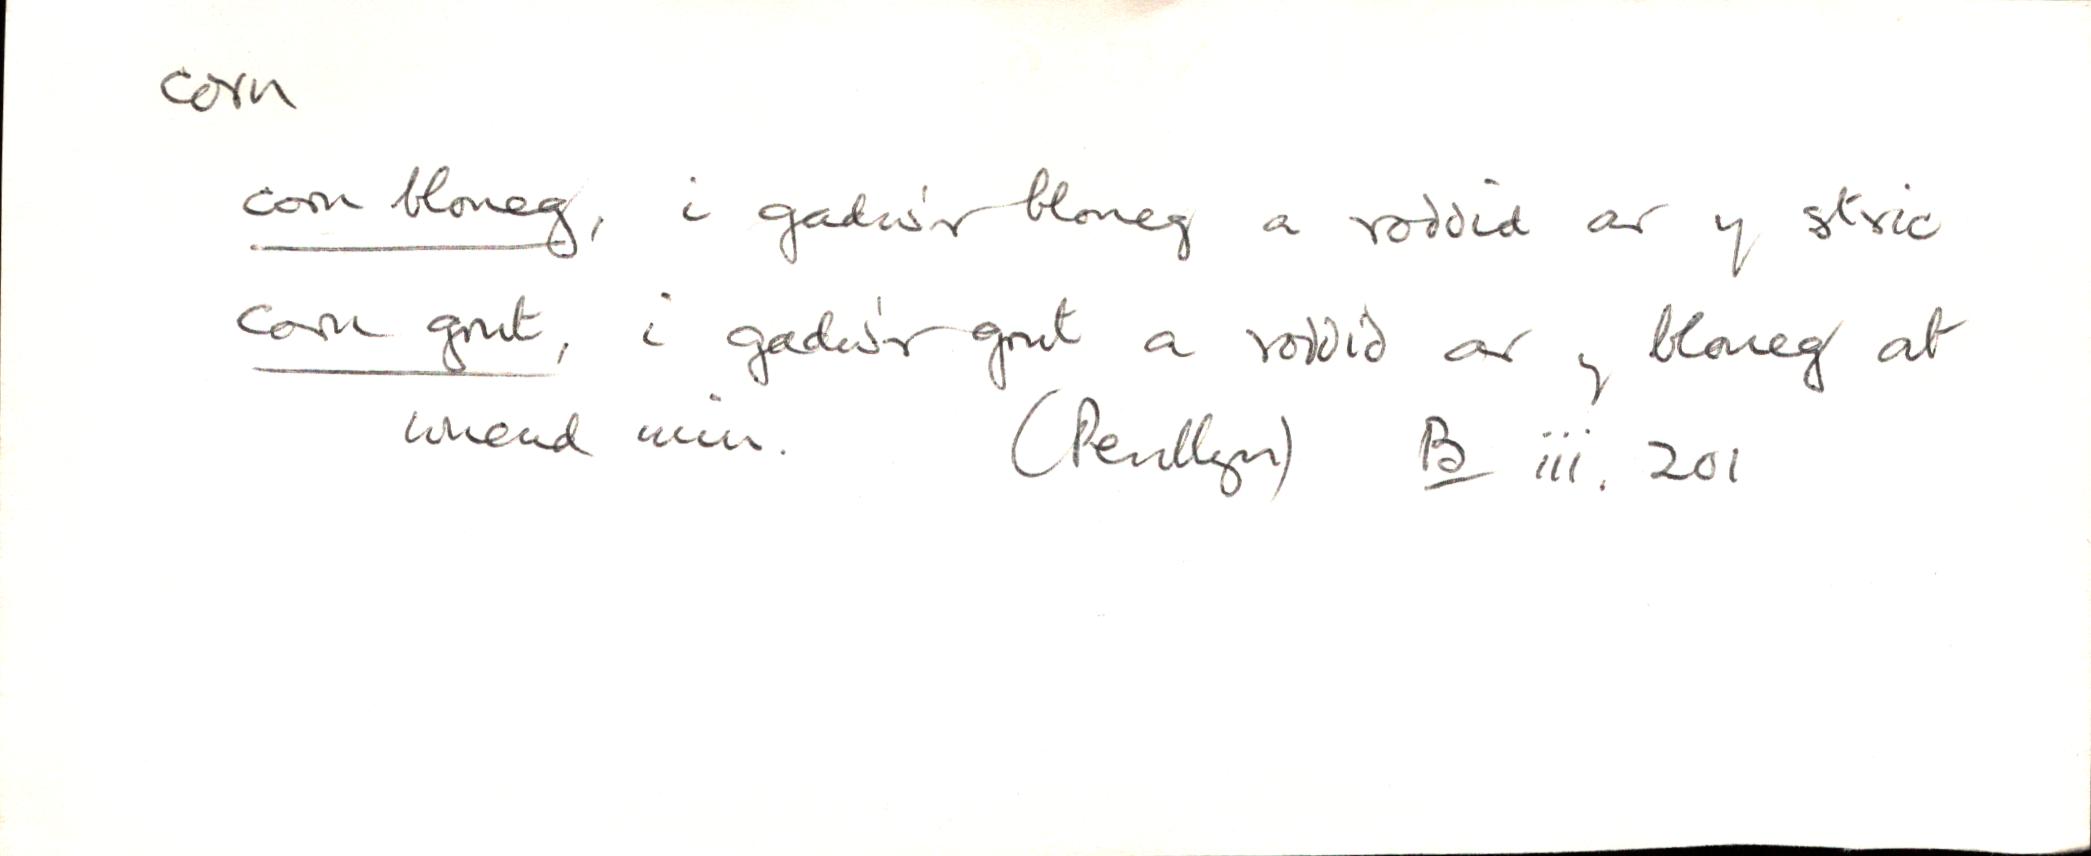 corn
corn bloneg, i gadw'r bloneg a roddid ar y stric
corn grut, i gadw'r grut a roddid ar y bloneg at
wneud min. (Penllyn) B iii. 201